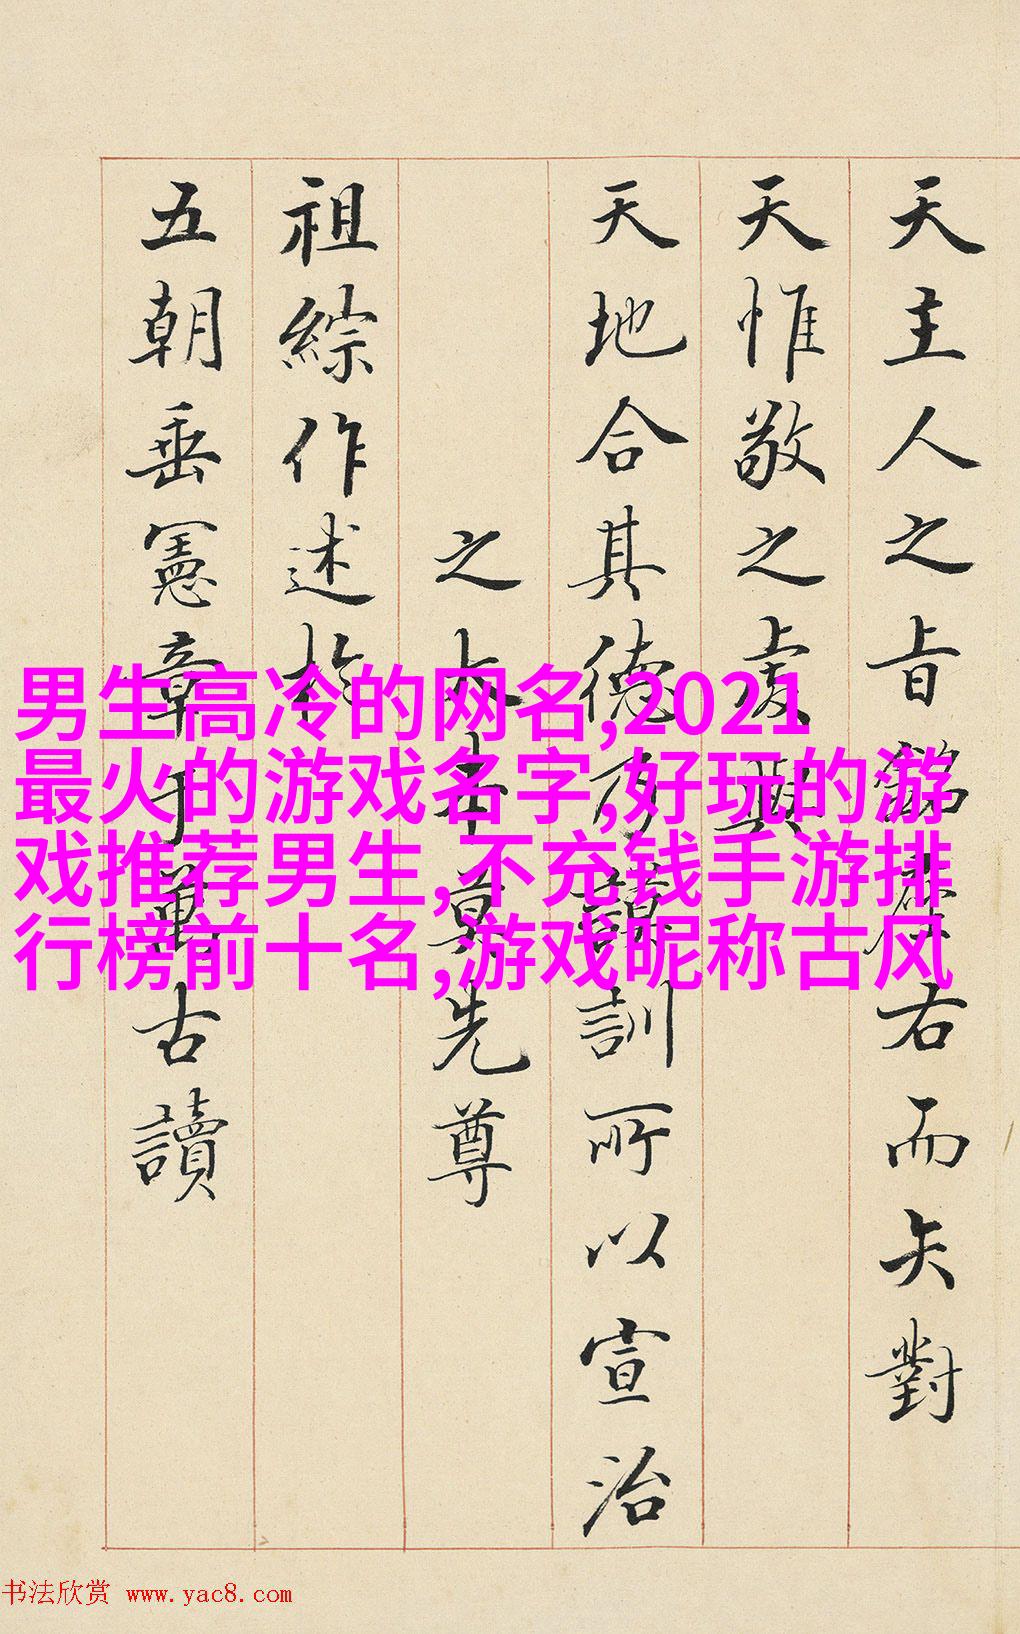 天主人之旨銘座右而矢對
天惟敬之虔
天地合其德乃謨訓所以宣治
之大本莫先尊
祖綜作述於
五朝垂憲章于萬古讀
男生高冷的网名,2021
最火的游戏名字,好玩的游
戏推荐男生,不充钱手游排
行榜前十名,游戏昵称古风
书法欣赏 www.yac8.com